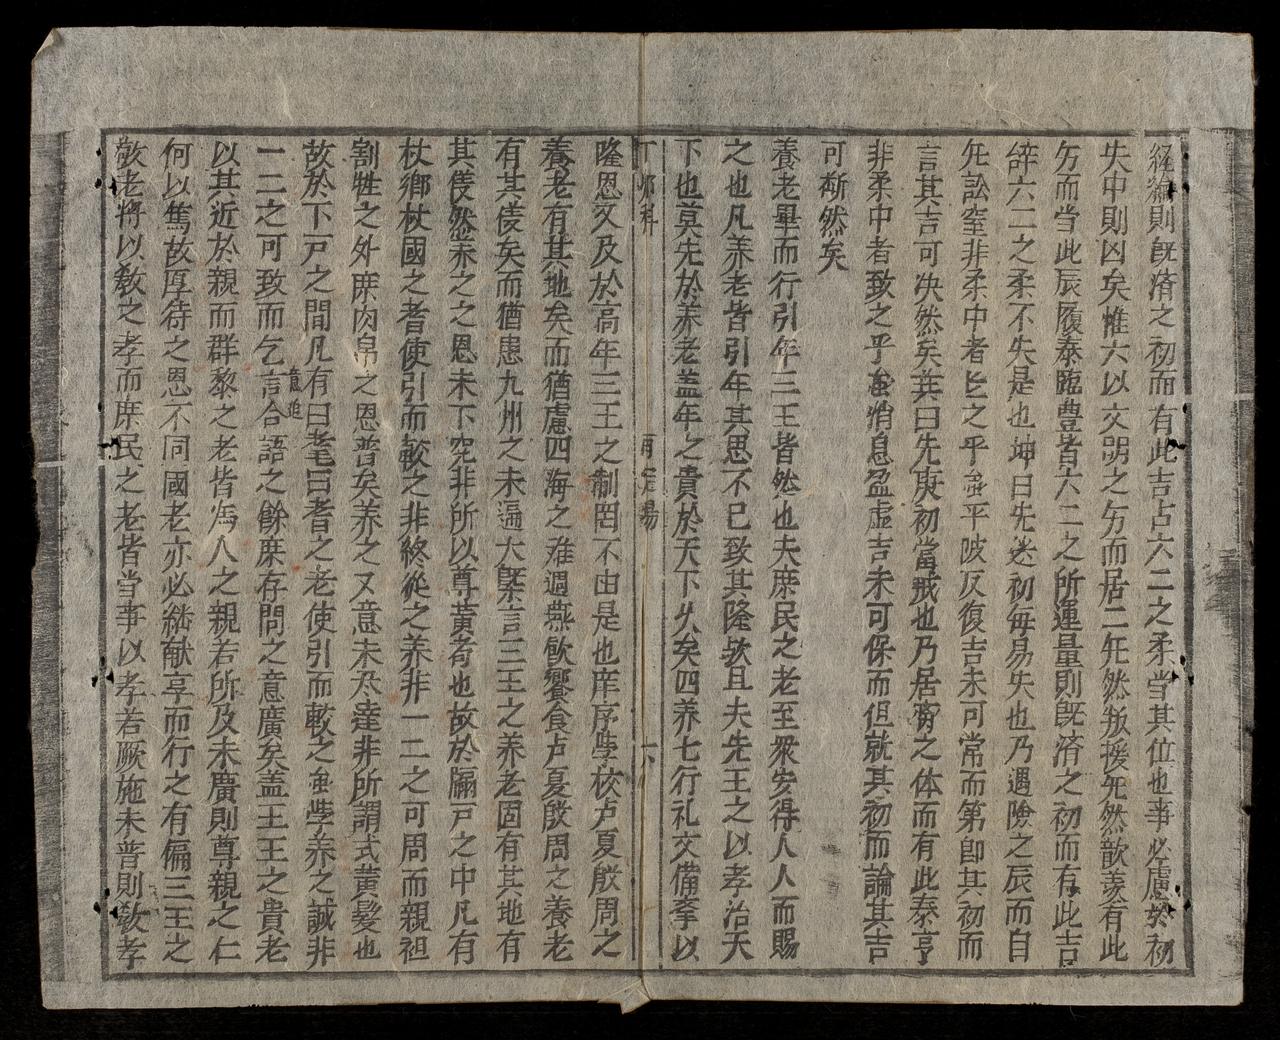 經綸則旣濟之初而有此吉占六二之柔当其位也事必慮於初
失中則凶矣惟六以文明之方而居二旡然叛援旡然歆羨有此
方而当此辰履泰臨豊皆六二之所運量則旣济之初而有此吉
辞六二之柔不失是也坤曰先迷初每易失也乃遇險之辰而自
旡訟窒非柔中者匕之乎 平陂反復吉未可常而第卽其初而
言其吉可决然矣 曰先庚初當戒也乃居 之体而有此泰亨
非柔中者致之乎 消息盈虛吉未可保而但就其初而論其吉
可断然矣
養老畢而行引年三王皆然也夫庶民之老至衆安得人人而賜
之也凡养老皆引年其思不已致其隆欤且夫先王之以孝治天
下也莫先於养老盖年之貴於天下久矣四养七行礼文備 以
丁卯科
隆恩文及於高年三王之制罔不由是也庠序學校卢夏殷周之
養老有其地矣而猶慮四海之难週燕飲饗食卢夏殷周之養老
有其 矣而猶患九州之未遍大槩言三王之养老固有其地有
其 然 之之恩未下究非所以尊黃耇也故於 戸之中凡有
杖鄉杖國之者使引而較之非終從之养非一二之可周而親袒
割牲之外庶肉帛之恩普矣养之又意未尽達非所謂式黃髮也
故於下戸之間凡有曰耄曰耆之老使引而較之 斈养之誠非
一二之可致而乞言合語之餘庶存問之意廣矣盖王王之貴老
以其近於親而群黎之老皆爲人之親若所及未廣則尊親之仁
何以篤故厚待之恩不同國老亦必 献享而行之有偏三王之
敬老將以敎之孝而庶民之老皆当事以孝若厥施未普則敎孝